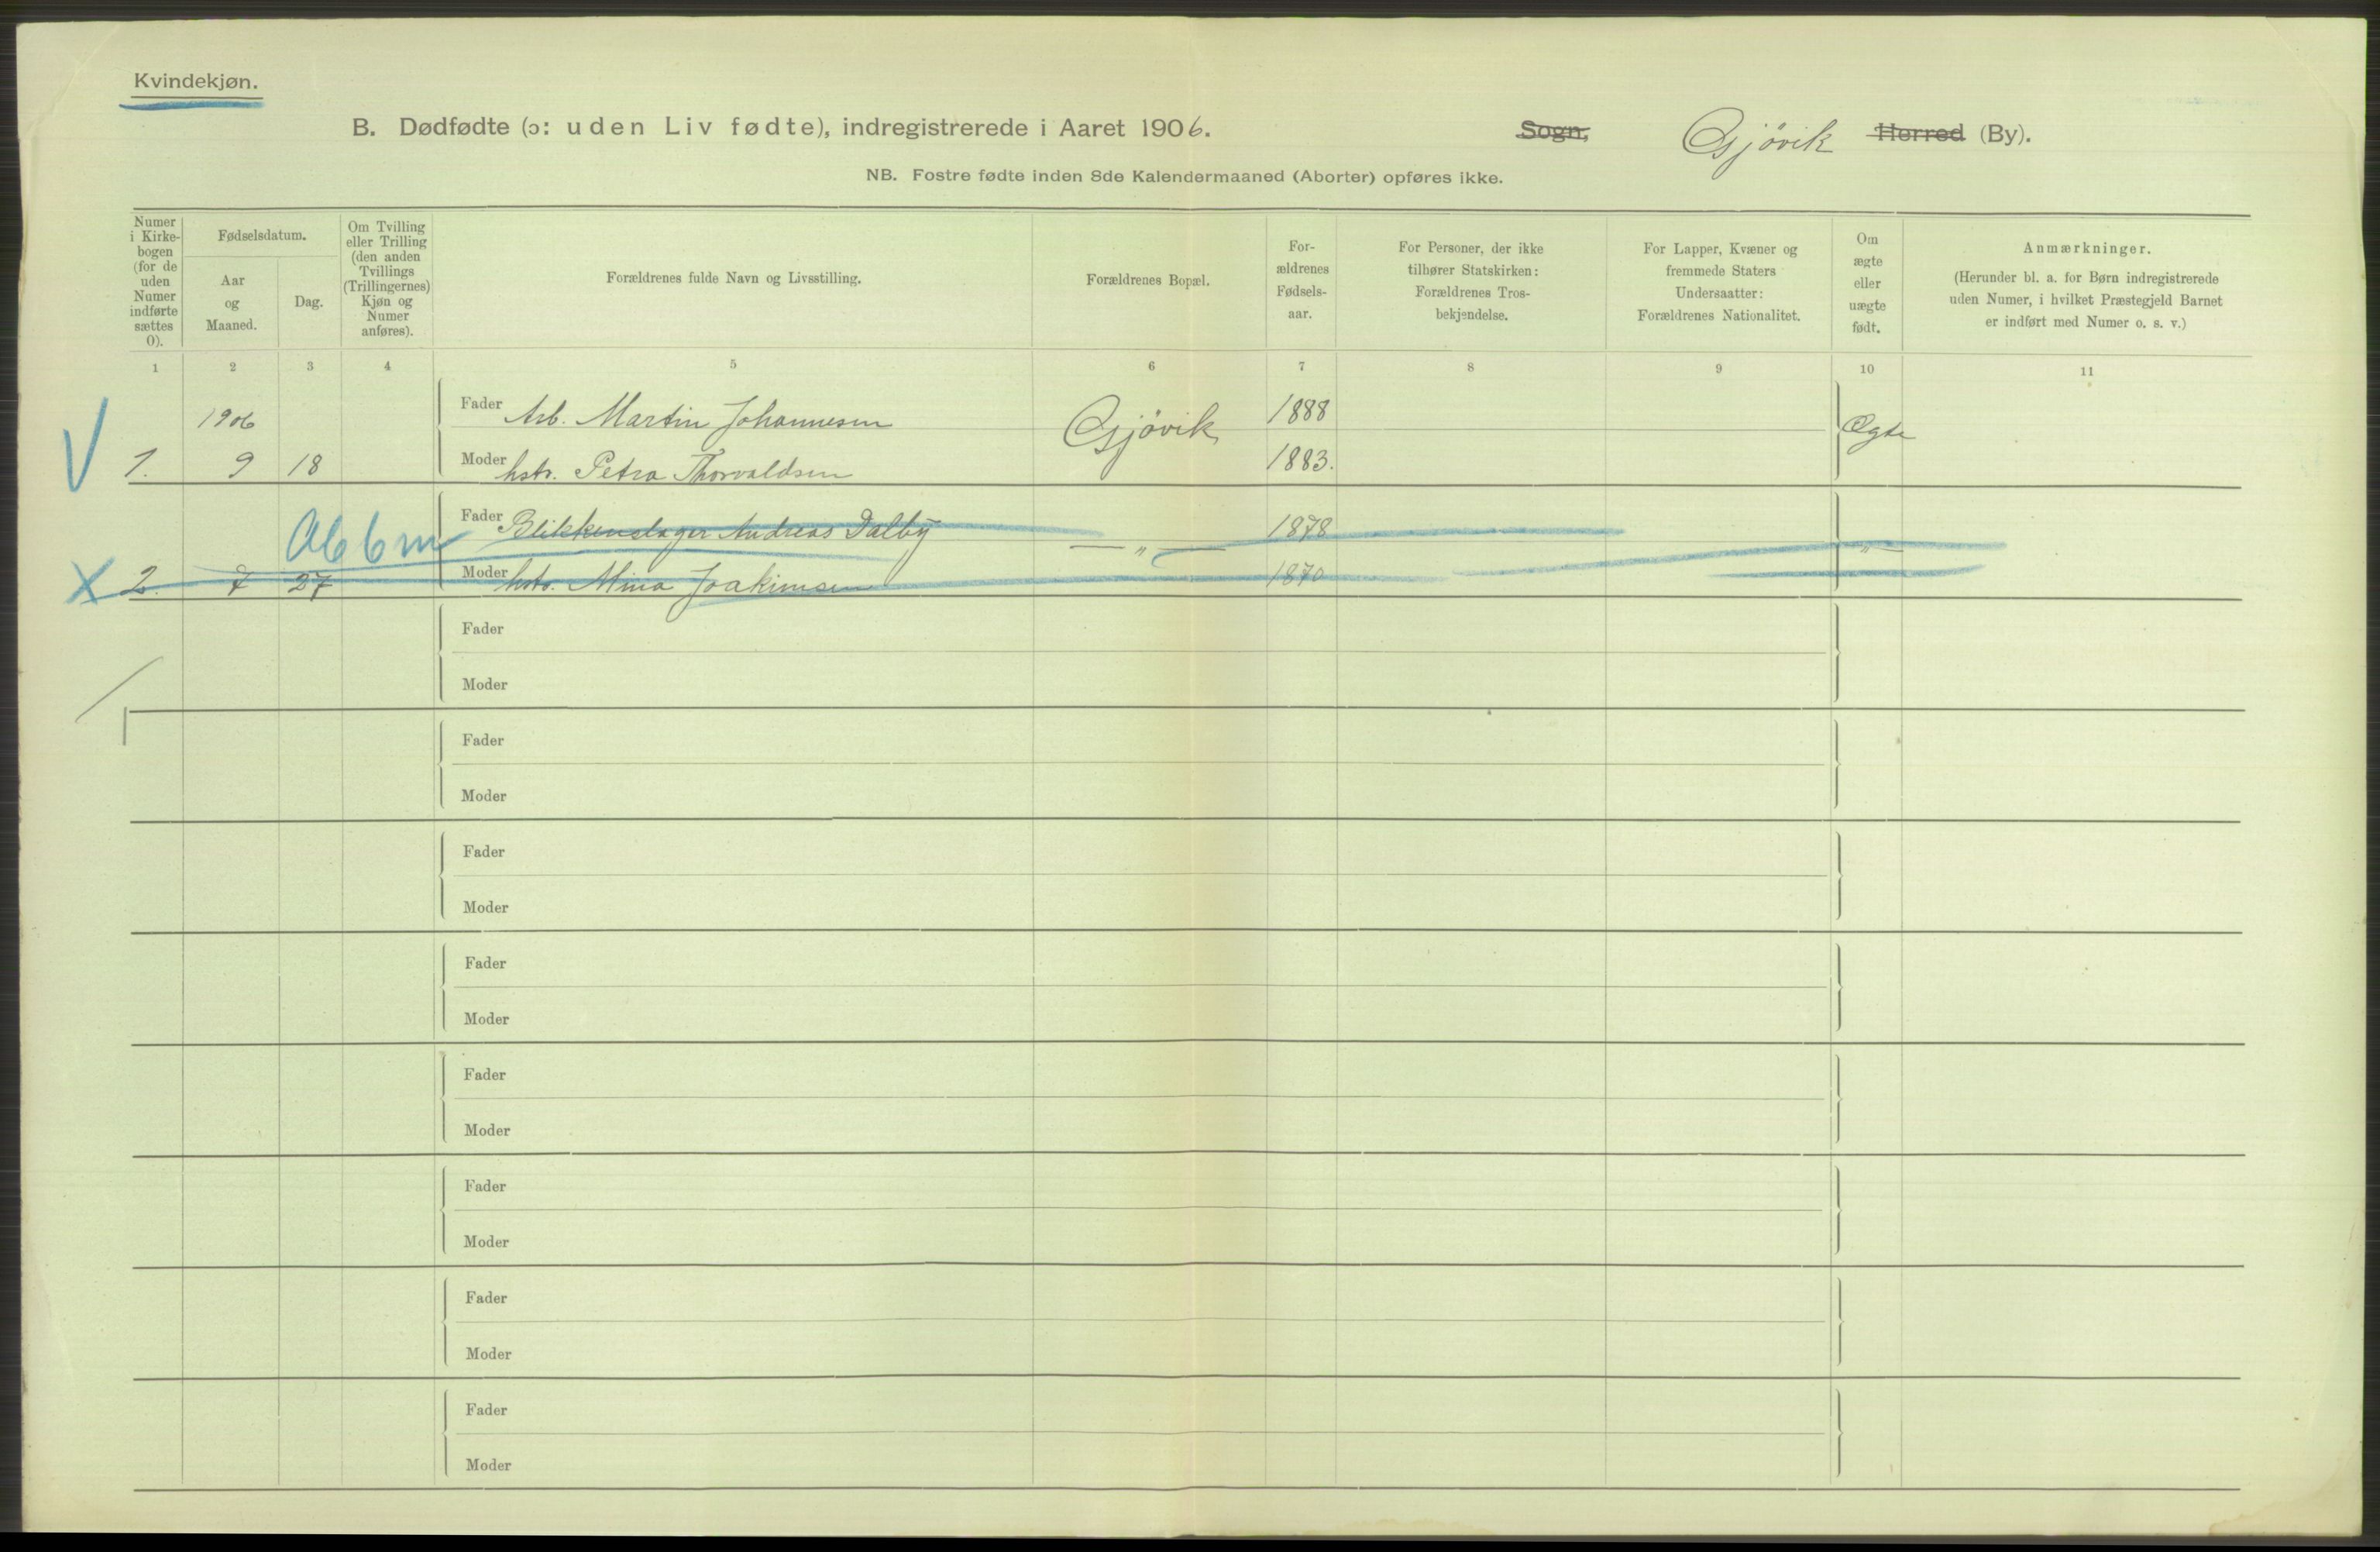 Kvindekjøn.
B. Dødfødte (ɔ: uden Liv fødte), indregistrerede i Aaret 1906. Sogn, Gjøvik Herred (By).
NB. Fostre fødte inden 8de Kalendermaaned (Aborter) opføres ikke.
Numer i Kirke-bogen (for de uden Numer indførte sættes 0).
Fødselsdatum.
Aar og Maaned.
Dag.
Om Tvilling eller Trilling (den anden Tvillings (Trillingernes) Kjøn og Numer anføres).
Forældrenes fulde Navn og Livsstilling.
Forældrenes Bopæl.
For-ældrenes Fødsels-aar.
For Personer, der ikke tilhører Statskirken: Forældrenes Tros-bekjendelse.
For Lapper, Kvæner og fremmede Staters Undersaatter: Forældrenes Nationalitet.
Om ægte eller uægte født.
Anmærkninger.
(Herunder bl. a. for Børn indregistrerede uden Numer, i hvilket Præstegjeld Barnet er indført med Numer o. s. v.)
1 2 3 4 5 6 7 8 9 10 11
1906 Fader Arb. Martin Johannesen Gjøvik 1888 Ægte
V 1. 9 18 Moder hstr. Petra Thorvaldsen 1883.
Ab 6 m Fader Blikkenslager Andreas Dalby — „ — 1878 „ —
X 2. 7 27 Moder hstr. Mina Joakimsen 1870
Fader
Moder
Fader
Moder
Fader
Moder
Fader
Moder
Fader
Moder
Fader
Moder
Fader
Moder
Fader
Moder